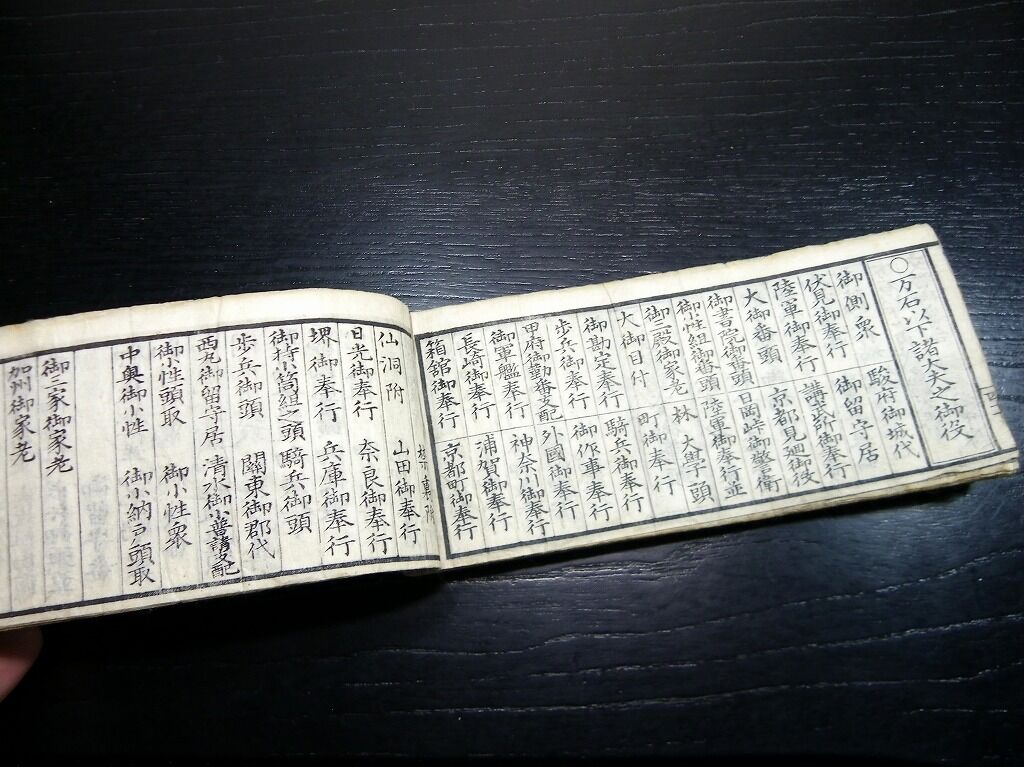 ○万石以下諸大夫之御役
御側衆　駿府御城代
伏見御奉行　御留守居
陸軍御奉行　講武所御奉行
大御番頭　京都見廻御役
御書院御番頭　日岡峠御警衛
御小性組御番頭　陸軍御奉行並
御三殿御家老　林大学頭
大御目付　町御奉行
御勘定奉行　騎兵御奉行
歩兵御奉行　御作事奉行
甲府御勤番支配　外國御奉行
御軍艦奉行　神奈川御奉行
長崎御奉行　浦賀御奉行
箱館御奉行　京都町御奉行
仙洞附　山田御奉行
日光御奉行　奈良御奉行
堺御奉行　兵庫御奉行
御持小筒組之頭　騎兵御頭
歩兵御頭　關東御郡代
西丸御留守居　清水御小普請支配
御小性頭取　御小性衆
中奥御小性　御小納戸頭取
御三家御家老
加州御家老